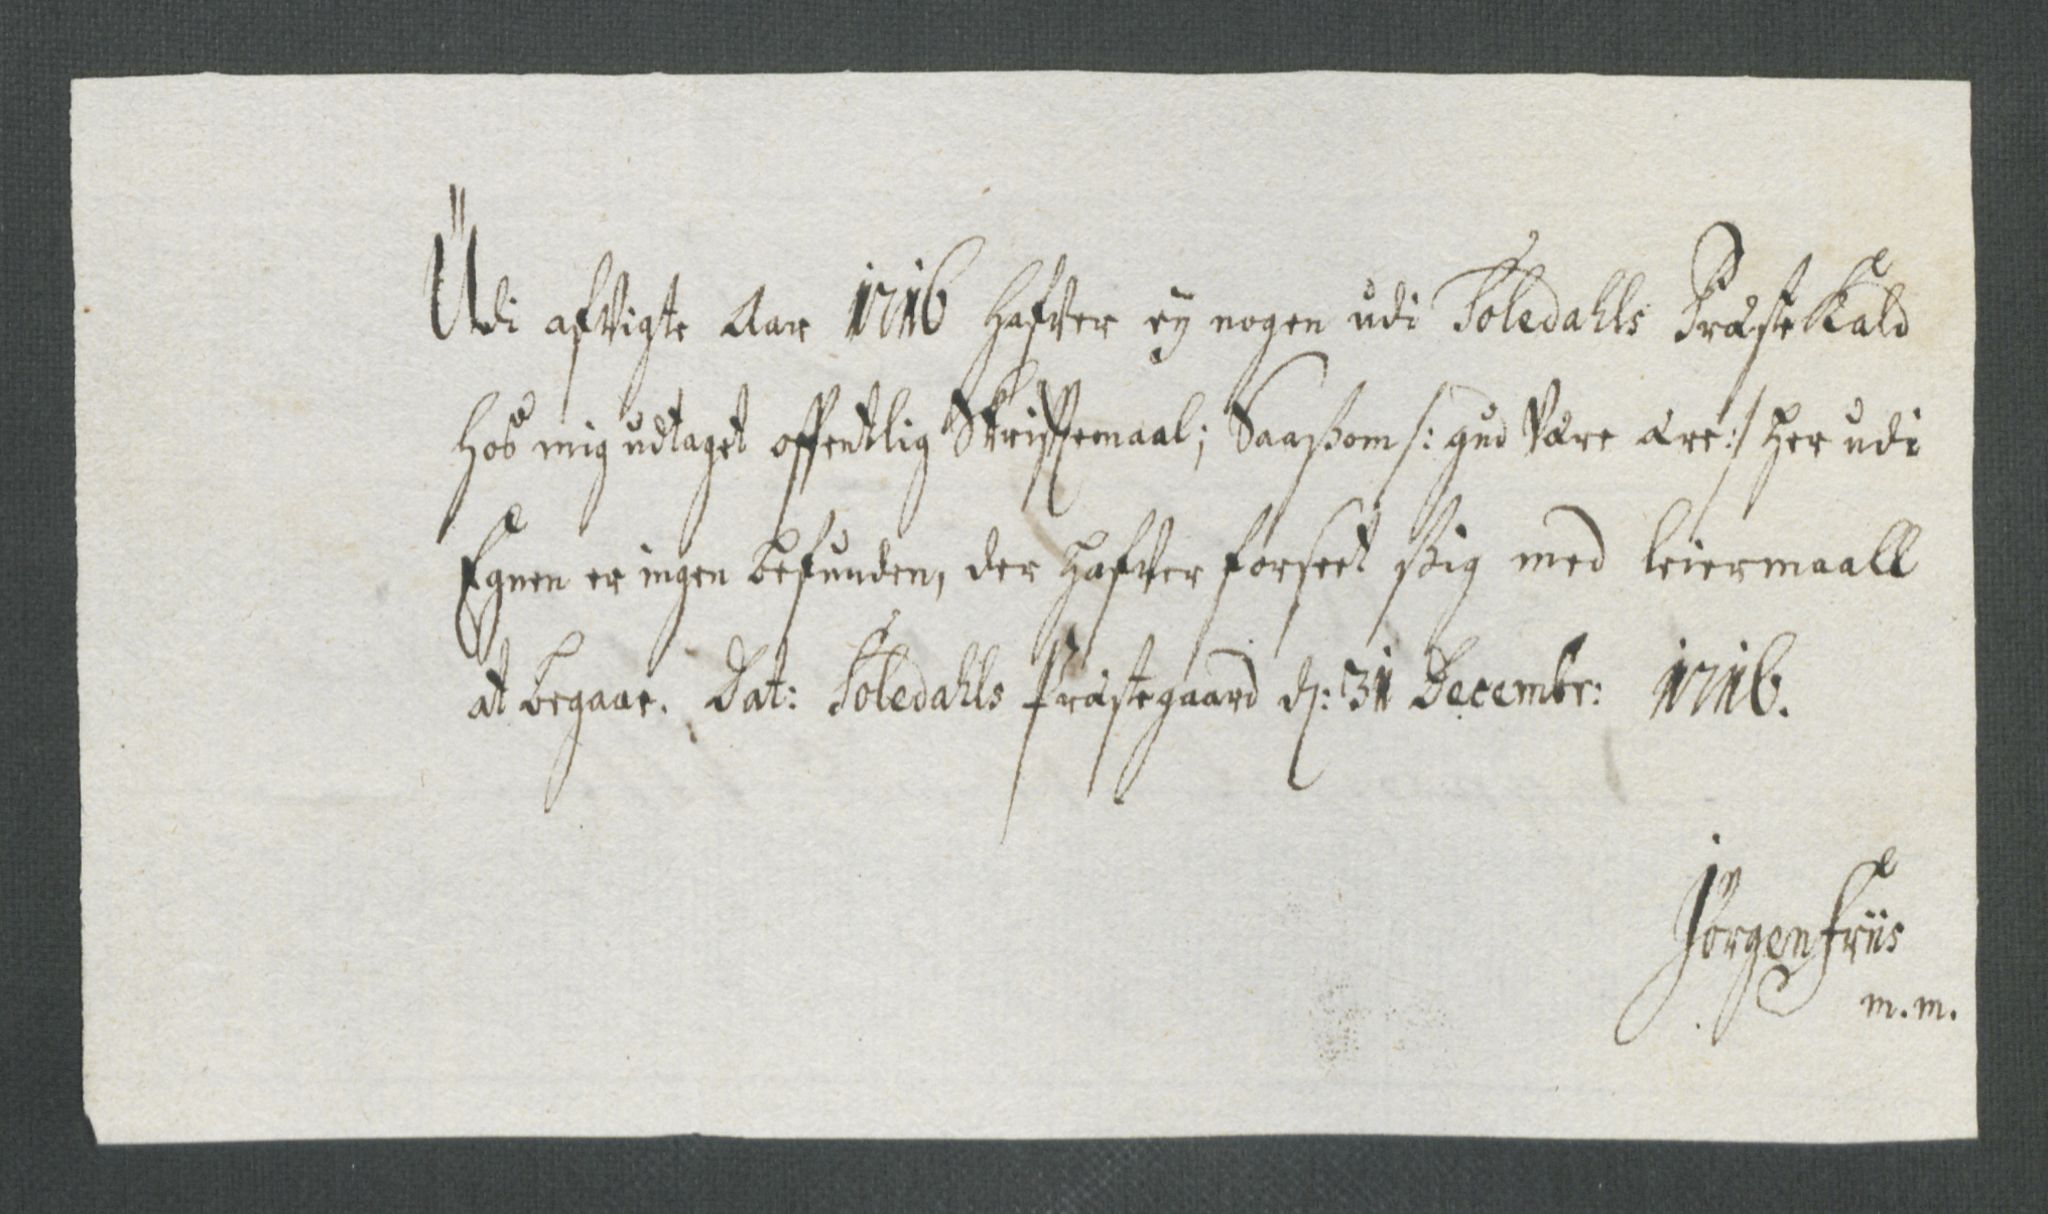 Udi afvigte Aar 1716 hafver ey nogen udi Foledahls Præstekald
hos mig udtaget offentlig Skriftemaal; Saasom /: gud være ære :/ her udi
Egnen er ingen befunden, der hafver forseet sig med leiermaall
at begaae. Dat: Foledahls Præstegaard d: 31 Decembr: 1716.
Jörgen Friis
m.m.